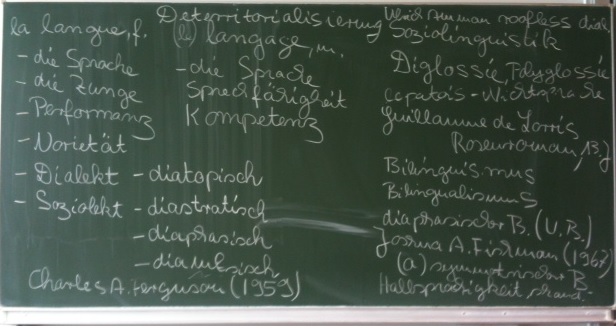 la langue, f.
- die Sprache
- die Zunge
- Performanz
- Varietät
- Dialekt - diatopisch
- Soziolekt - diastratisch
- diaphasisch
Charles A. Ferguson (1959)
Deterritorialisierung
(le) langage, m.
- die Sprache
Sprechfähigkeit
Kompetenz
Ulrich Ammon roofless
Soziolinguistik
Diglossie, Polyglossie
Guillaume de Lorris
Rosenroman, 13. J
Bilinguismus
Bilingualismus
diaphasischer B. (U. B.)
Joshua A. Fishman (1967)
(a) symmetrischer B.
Halbsprachigkeit